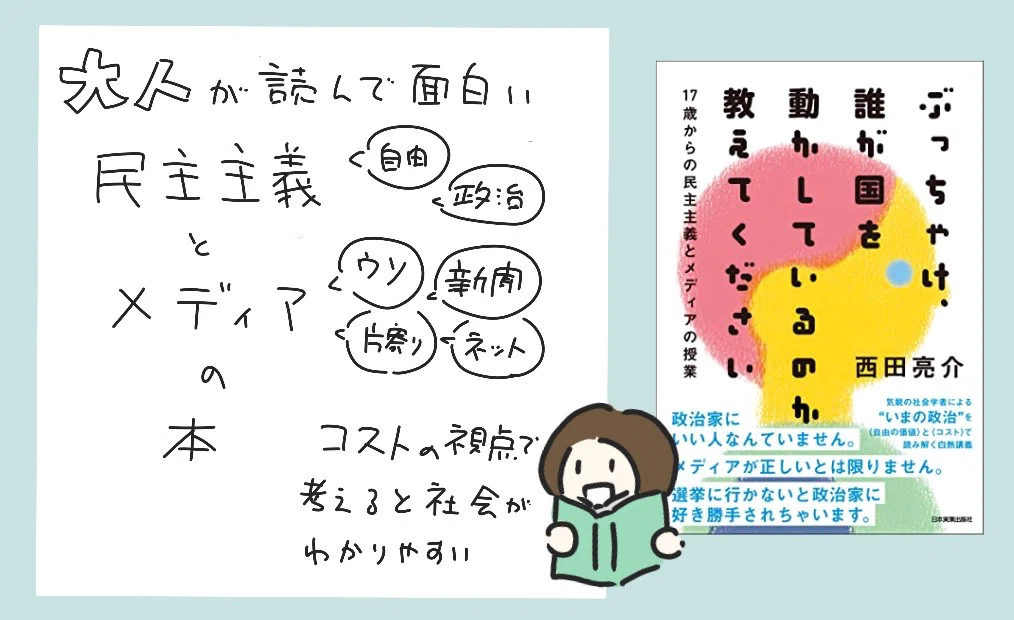 大人が読んで面白い
民主主義
自由
政治
と
メディア
ウソ
新聞
片寄り
ネット
の
本
コストの視点で
考えると社会が
わかりやすい
ぶっちゃけ、
誰が国を
動かしているのか
教えてください
17歳からの民主主義とメディアの授業
西田亮介
気鋭の社会学者による
“いまの政治”を
〈自由の価値〉と〈コスト〉で
読み解く白熱講義
政治家に
いい人なんていません。
メディアが正しいとは限りません。
選挙に行かないと政治家に
好き勝手されちゃいます。
日本実業出版社